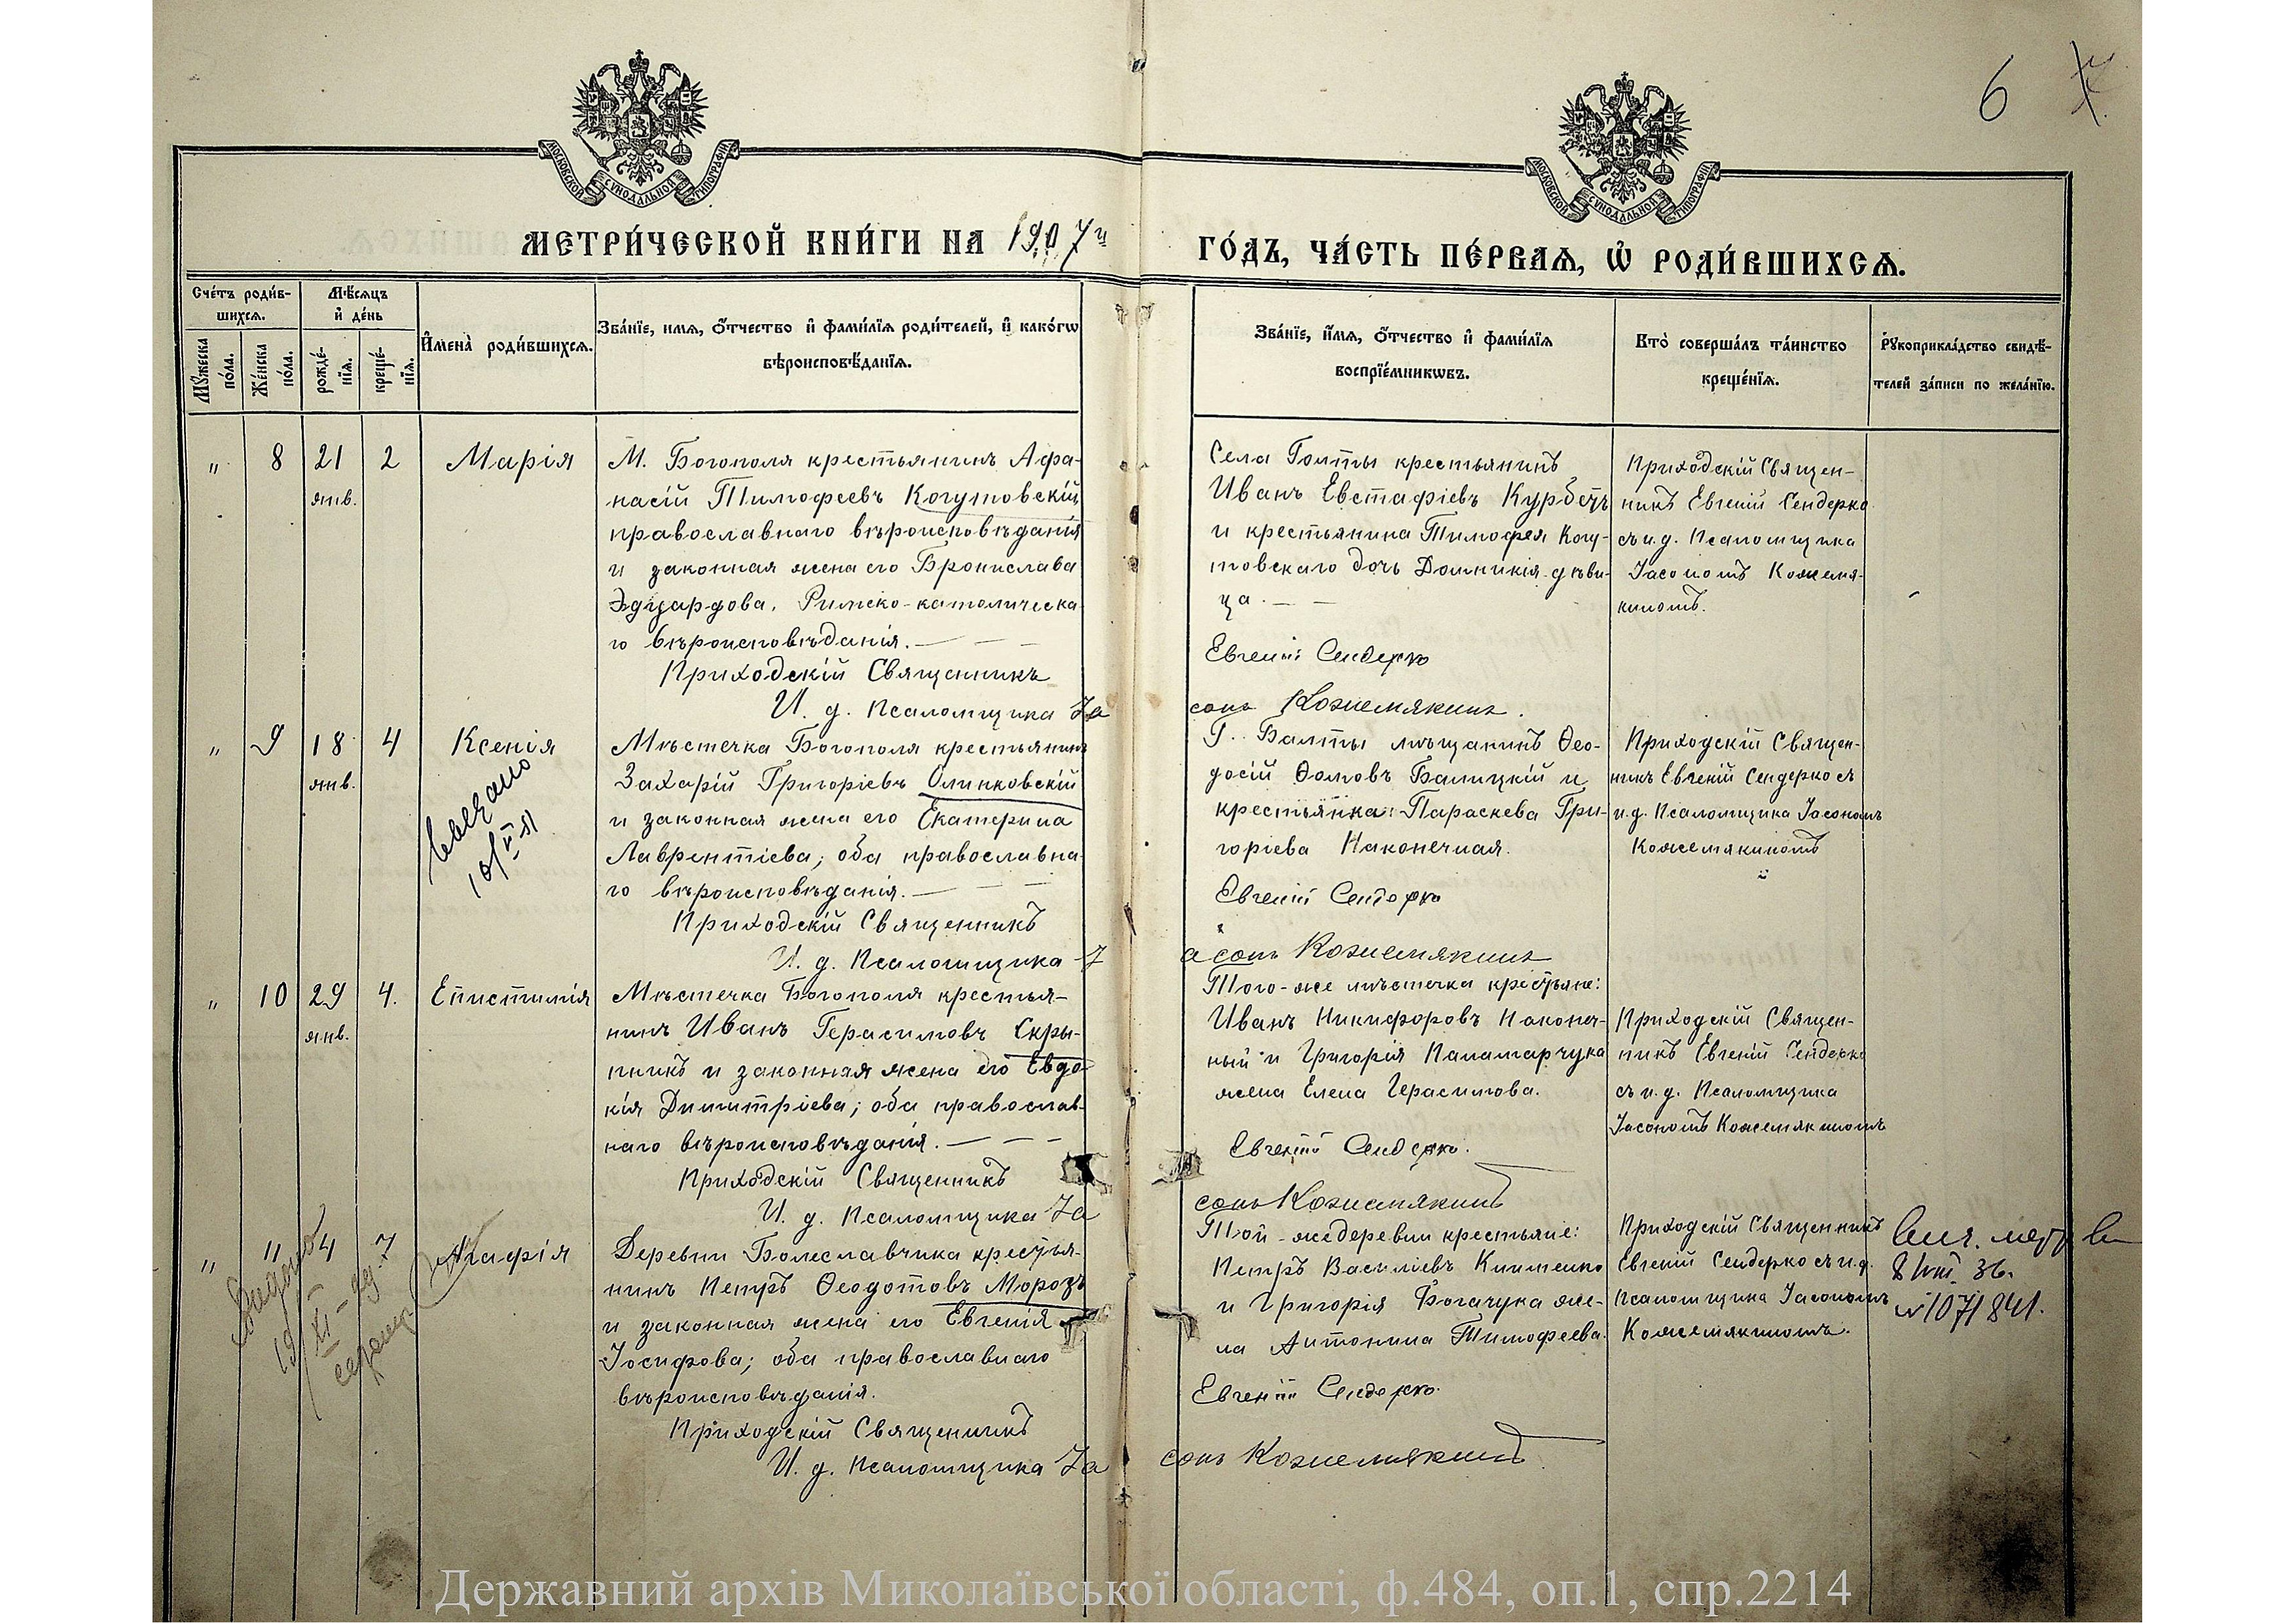 6 7
МОСКОВСКОЙ СУНОДАЛЬНОЙ ТИПОГРАФІИ
МОСКОВСКОЙ СУНОДАЛЬНОЙ ТИПОГРАФІИ
МЕТРИ́ЧЕСКОЙ КНИ́ГИ НА 1907й ГО́ДЪ, ЧА́СТЬ ПЕ́РВАѦ, Ѡ҆ РОДИ́ВШИХСѦ.
Сче́тъ роди́в-
шихсѧ.
Мꙋ́жеска по́ла.
Же́нска по́ла.
Мѣ́сѧцъ
и҆ де́нь
рожде́-
нїѧ.
креще́-
нїѧ.
И҆мена̀ роди́вшихсѧ.
Зва́нїе, и҆мѧ, ѻ҆́тчество и҆ фами́лїѧ роди́телей, и҆ како́гѡ
вѣроисповѣ́данїѧ.
Зва́нїе, и҆́мѧ, ѻ҆́тчество и҆ фами́лїѧ
воспрїе́мникѡвъ.
Кто̀ соверша́лъ та́инство
креще́нїѧ.
Рꙋкоприкла́дство свидѣ́-
телей за́писи по жела́нїю.
" 8 21 2 Марія
янв.
М. Богополя крестьянинъ Афа-
насій Тимофеевъ Когутовскій
православнаго вѣроисповѣданія
и законная жена его Бронислава
Эдуардова, Римско-католическа-
го вѣроисповѣданія.
Приходскій Священникъ
И. д. Псаломщика Іа
Села Голты крестьянинъ
Иванъ Евстафіевъ Курбетъ
и крестьянина Тимофея Когу-
товскаго дочь Домникія дѣви-
ца.
Евгеній Сендерко
сонъ Кожемякинъ.
Приходскій Священ-
никъ Евгеній Сендерко
съ и.д. Псаломщика
Іасономъ Кожемя-
кинымъ.
" 9 18 4 Ксенія
янв.
10/II 51
Мѣстечка Богополя крестьянинъ
Захарій Григоріевъ Олинковскій
и законная жена его Екатерина
Лаврентіева; оба православна-
го вѣроисповѣданія.
Приходскій Священникъ
И. д. Псаломщика І
Г. Балты мѣщанинъ Ѳео-
досій Ѳомовъ Балицкій и
крестьянка: Параскева Гри-
горіева Наконечная.
Евгеній Сендерко
асонъ Кожемякинъ
Приходскій Священ-
никъ Евгеній Сендерко съ
и.д. Псаломщика Іасономъ
Кожемякинымъ
" 10 29 4. Епистимія
янв.
Мѣстечка Богополя крестья-
нинъ Иванъ Герасимовъ Скры-
пникъ и законная жена его Евдо-
кія Димитріева; оба православ-
наго вѣроисповѣданія.
Приходскій Священникъ
И. д. Псаломщика Іа
Того-же мѣстечка крестьяне:
Иванъ Никифоровъ Наконеч-
ный и Григорія Паламарчука
жена Елена Герасимова.
Евгеній Сендерко.
сонъ Кожемякинъ
Приходскій Священ-
никъ Евгеній Сендерко
съ и.д. Псаломщика
Іасономъ Кожемякинымъ
" 11 4 7 Агафія
Деревни Болеславчика крестья-
нинъ Петръ Ѳеодотовъ Морозъ
и законная жена его Евгенія
Іосифова; оба православнаго
вѣроисповѣданія.
Приходскій Священникъ
И. д. Псаломщика Іа
Той-же деревни крестьяне:
Петръ Василіевъ Книшенко
и Григорія Богачука же-
на Антонина Тимофеева.
Евгеній Сендерко.
сонъ Кожемякинъ
Приходскій Священникъ
Евгеній Сендерко съ и.д.
Псаломщика Іасономъ
Кожемякинымъ.
36.
№1071841.
Державний архів Миколаївської області, ф.484, оп.1, спр.2214